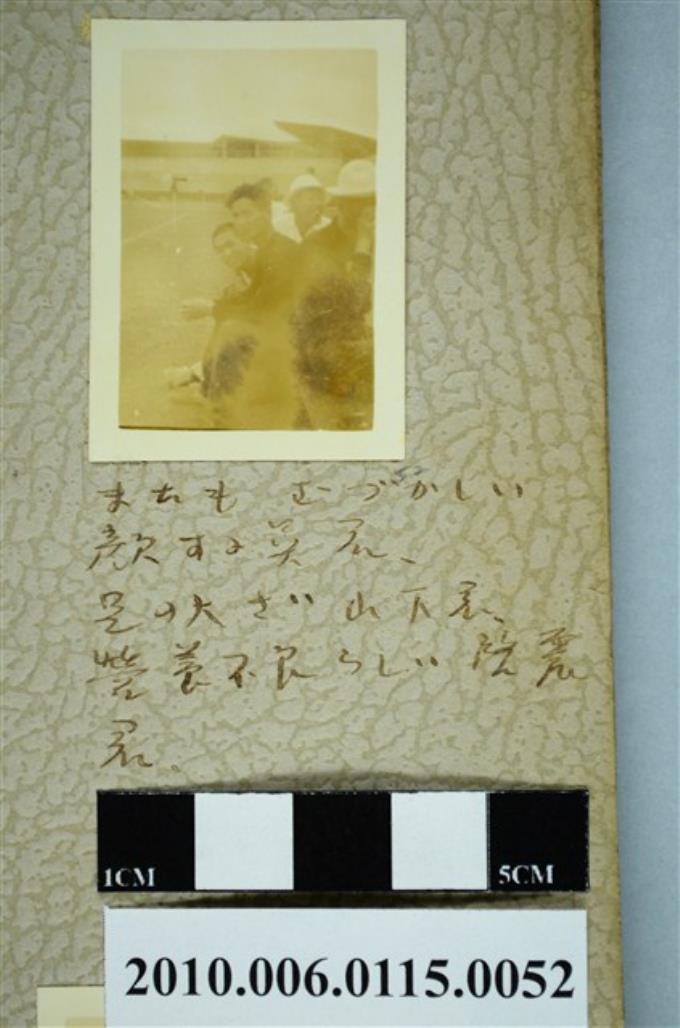 まちも むづかしい
顔する吴君、
足の大きい 山下君、
営養不良らしい 陰震
君。
1CM 5CM
2010.006.0115.0052